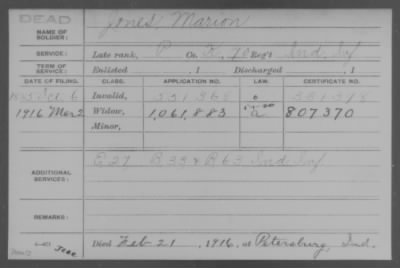 DEAD
NAME OF SOLDIER: Jones, Marion
SERVICE: Late rank, P Co. K, 70 Reg't Ind. Inf
TERM OF SERVICE: Enlisted , 1 Discharged , 1
DATE OF FILING. CLASS. APPLICATION NO. LAW. CERTIFICATE NO.
Invalid,
1916 Mar 2 Widow, 1,061,883 a 807370
Minor,
ADDITIONAL SERVICES: E 27 B 33 & B 63 Ind Inf
REMARKS:
Died Feb 21, 1916, at Petersburg, Ind.